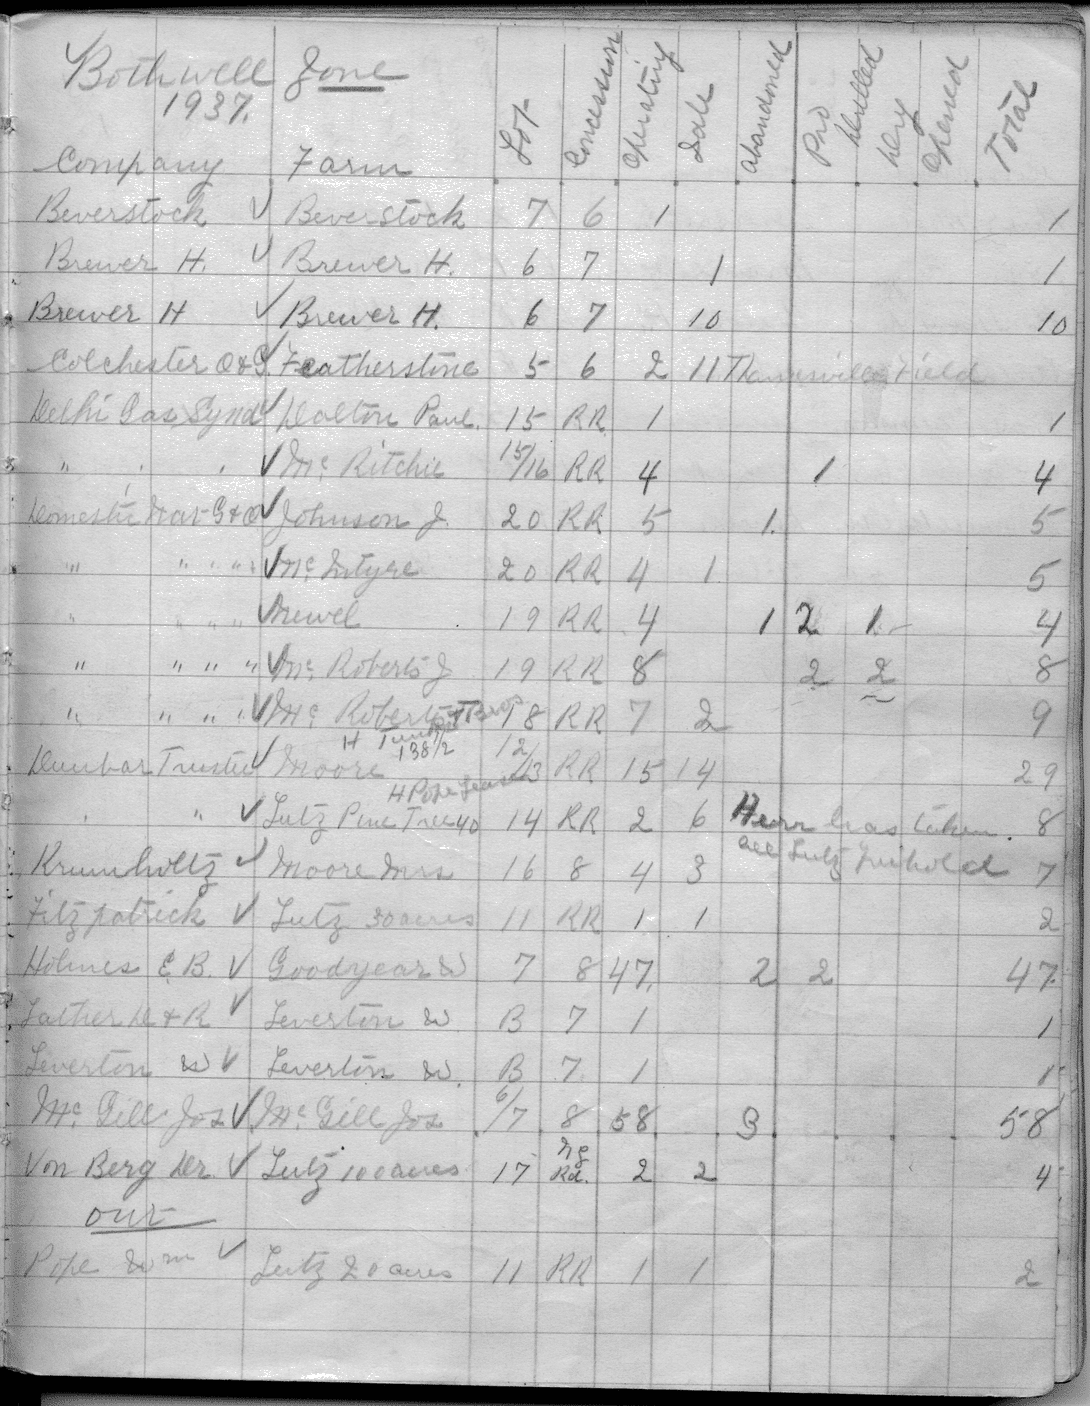 Bothwell Zone
1937.
Company Farm Lot Concession Operating Idle Abandoned Pro Drilled Dry Opened Total
Beverstock ✓ Beverstock 7 6 1 1
Brewer H. ✓ Brewer H. 6 7 1 1
Brewer H ✓ Brewer H. 6 7 10 10
Colchester O+G. ✓ Featherstone 5 6 2 11 Thamesville Field
Delhi Gas Synd ✓ Dalton Paul. 15 RR 1 1
" " " ✓ Mc Ritchie 15/16 RR 4 1 4
Domestic Nat G+O ✓ Johnson J. 20 RR 5 1. 5
" " " " ✓ Mc Intyre 20 RR 4 1 5
" " " " ✓ 19 RR 4 1 2 1 4
" " " " ✓ Mc Roberts J 19 RR 8 2 2 8
" " " " ✓ Mc Roberts Bros 18 RR 7 2 9
H 138/2
Dunbar Trustee ✓ Moore 12/13 RR 15 14 29
H Pope Lease
" " ✓ Lutz Pine Tree 40 14 RR 2 6 Herr has taken. 8
all Lutz
Krumholtz ✓ Moore Mrs 16 8 4 3 7
Fitzpatrick ✓ Lutz 30 acres 11 RR 1 1 2
Holmes E. B. ✓ Goodyear W 7 8 47. 2 2 47.
Lather D + R ✓ Leverton W B 7 1 1
Leverton W ✓ Leverton W. B 7 1 1
Mc Gill Jos ✓ Mc Gill Jos 6/7 8 58 3 58
Von Berg Dr. ✓ Lutz 100 acres 17 Rd. 2 2 4
out
Pope Wm ✓ Lutz 20 acres 11 RR 1 1 2